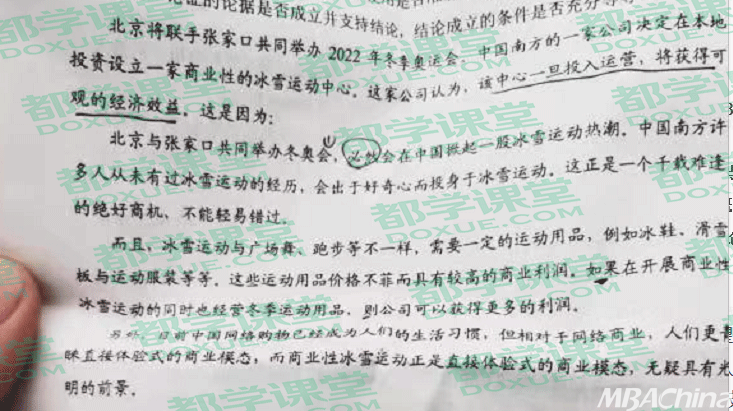 论证的论据是否成立并支持结论，结论成立的条件是否充分等等
北京将联手张家口共同举办 2022 年冬季奥运会，中国南方的一家公司决定在本地
投资设立一家商业性的冰雪运动中心。这家公司认为，该中心一旦投入运营，将获得可
观的经济效益。这是因为：
北京与张家口共同举办冬奥会，必然会在中国掀起一股冰雪运动热潮。中国南方许
多人从未有过冰雪运动的经历，会出于好奇心而投身于冰雪运动。这正是一个千载难逢
的绝好商机，不能轻易错过。
而且，冰雪运动与广场舞、跑步等不一样，需要一定的运动用品，例如冰鞋、滑雪
板与运动服装等等。这些运动用品价格不菲而具有较高的商业利润。如果在开展商业性
冰雪运动的同时也经营冬季运动用品，则公司可以获得更多的利润。
另外，目前中国网络购物已经成为人们的生活习惯，但相对于网络商业，人们更青
睐直接体验式的商业模态，而商业性冰雪运动正是直接体验式的商业模态，无疑具有光
明的前景。
都学课堂
DOXUE.COM
MBAChina